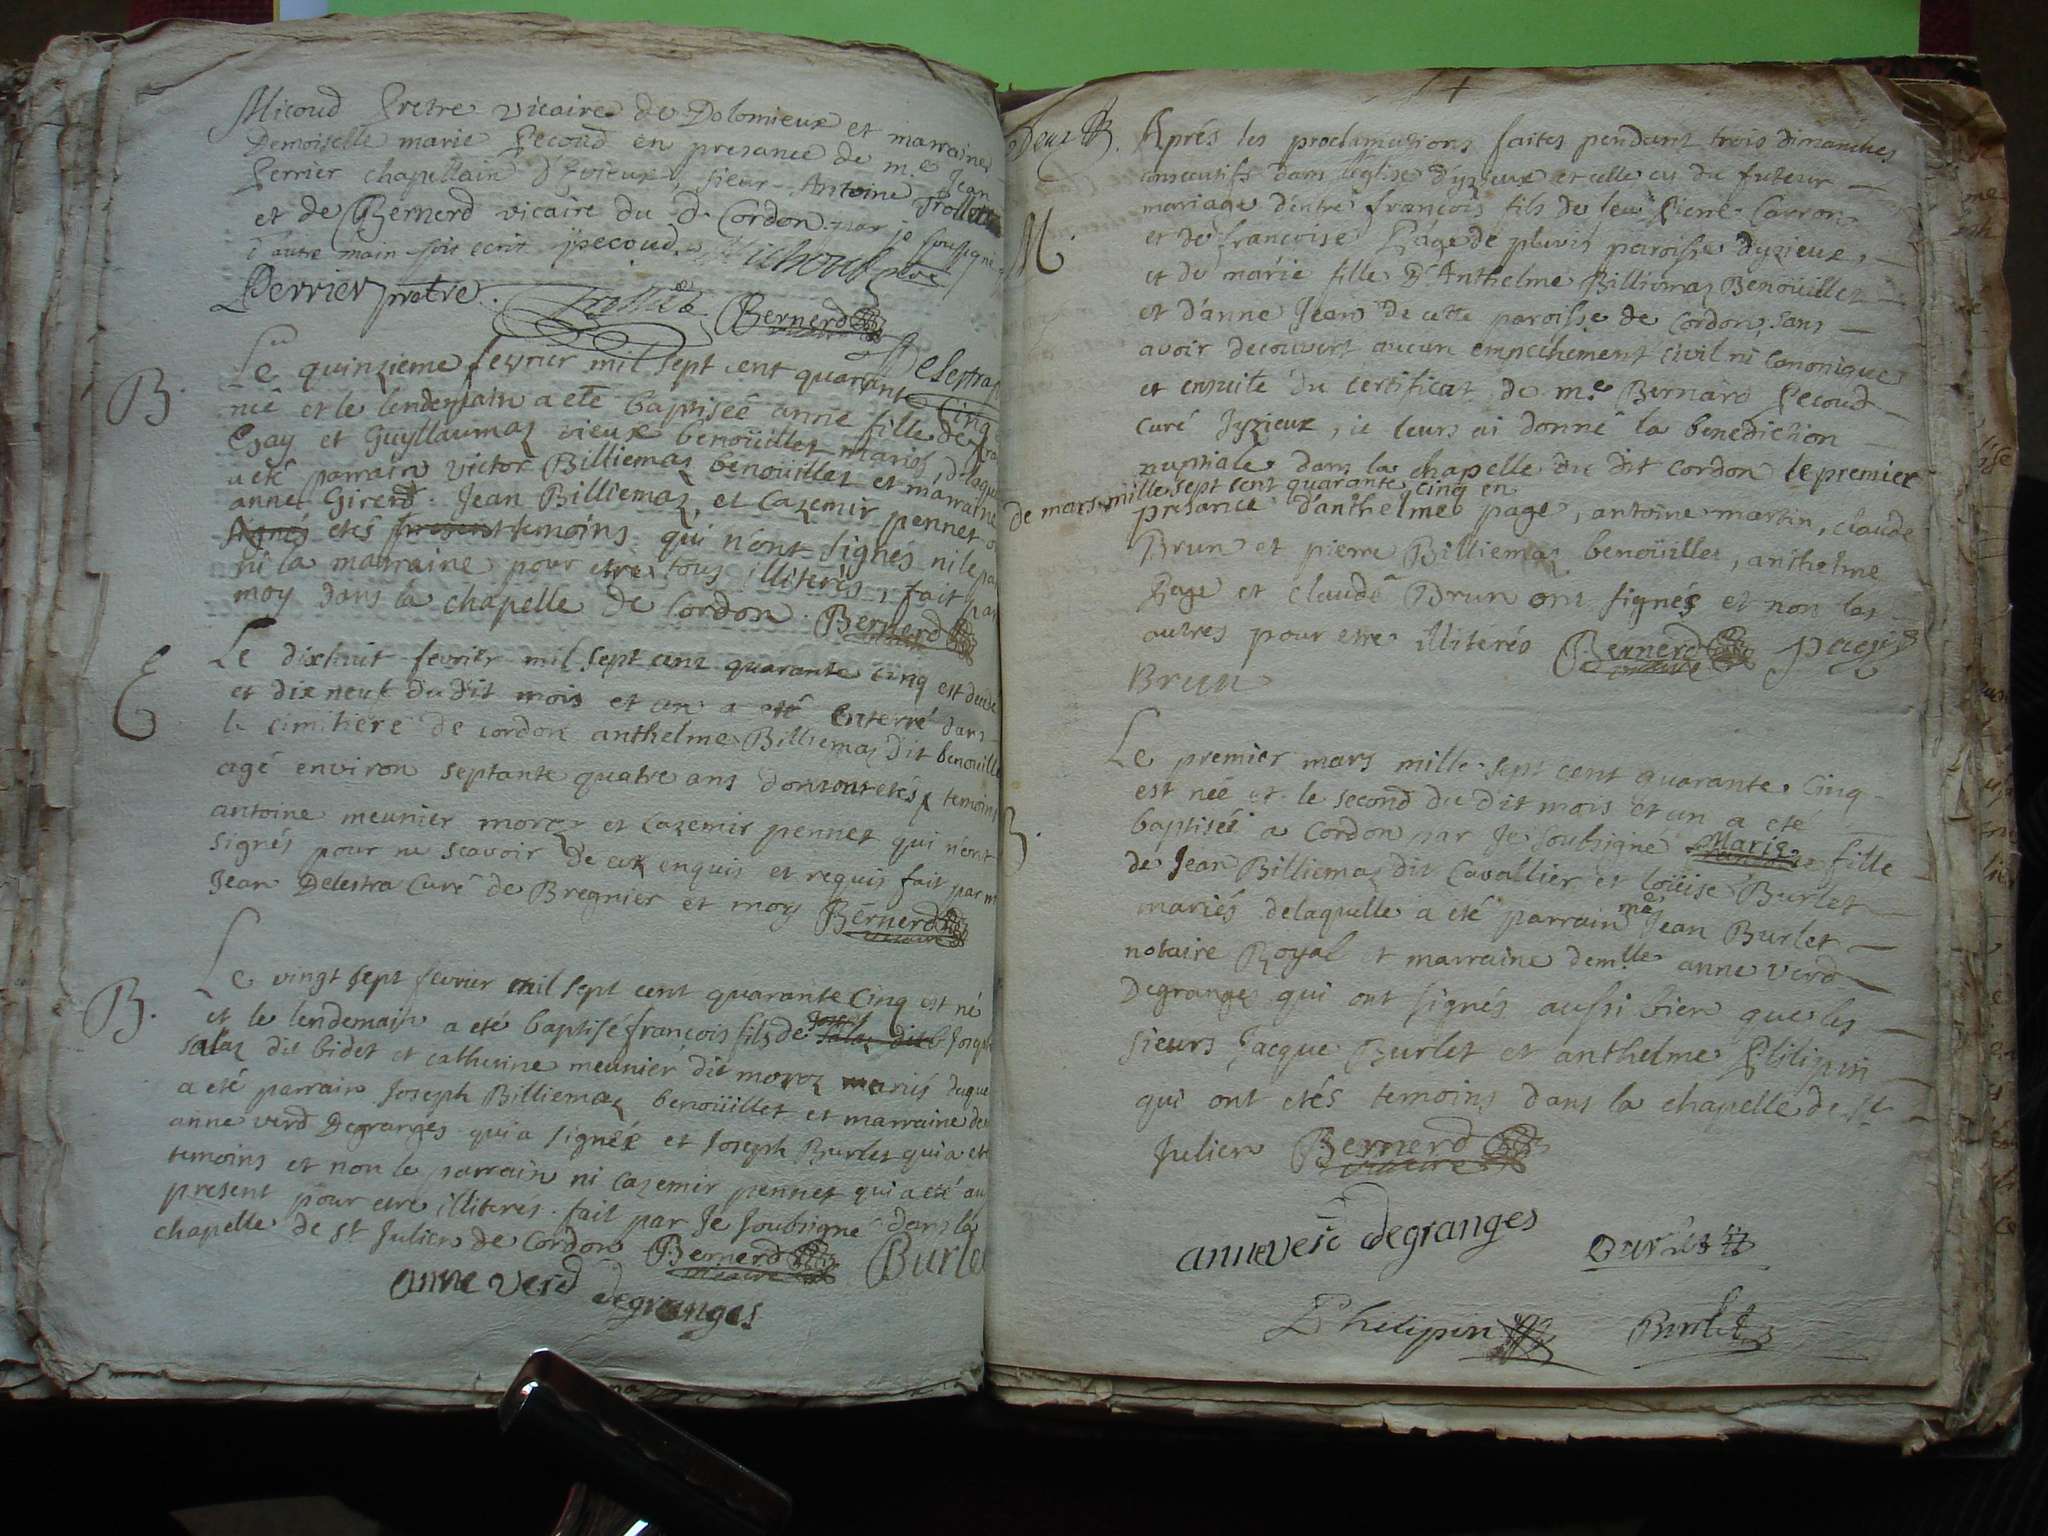 Micoud Pretre vicaire de Dolomieux et marraine
Demoiselle marie Pecoud en presance de m.e Jean
Perrier chapellain d'Evieux, sieur Antoine Trolliet
et de Bernerd vicaire du d. Cordon par je soussigné
d'autre main soit ecrit pecoud
Perrier pretre. Bernerd
B. Le quinzieme fevrier mil sept cent quarante Cinq
neé et le lendemain a eté baptisée anne fille de
Esay et Guyllaumaz vieux benoüillet mariés delaque
a été parrain victor Billiemaz benoüillet et marraine
anne Girerd. Jean Billiemaz, et Cazemir pennet
etés temoins qui n'ont signés ni le pa
ni la marraine pour etre tous illiterés, fait par
moy dans la chapelle de Cordon. Bernerd
E Le dixhuit fevrier mil sept cent quarante cinq est decedé
et dix neuf du dit mois et an a eté enterré dans
le cimitiere de cordon anthelme Billiemaz dit benouille
agé environ septante quatre ans dont ont etés temoins
antoine meunier moroz et Cazemir pennet qui n'ont
signés pour ne scavoir de eux enquis et requis fait par m
Jean Delestra Curé de Bregnier et moy Bernerd
vicaire
B. Le vingt sept fevrier mil sept cent quarante Cinq est né
et le lendemain a eté baptisé francois fils de Joseph
Salaz dit bidet et catherine meunier dit moroz mariés duque
a eté parrain Joseph Billiemaz benoüillet et marraine de
anne verd Degranges qui a signée et Joseph Burlet qui a eté
temoins et non le parrain ni Cazemir pennet qui a eté au
present pour etre illiterés. fait par Je soubsigné dans la
chapelle de St Julien de Cordon Bernerd Burlet
vicaire
anne verd degranges
Aprés les proclamations faites pendant trois dimanches
consecutifs dans l'église dyzieux et celle cy du futeur
M. mariage d'entre françois fils de feu Pierre Carron
et de francoise Page de pluvis paroisse dyzieux,
et de marie fille d'Anthelme Billiemaz Benoüillet
et d'anne Jean de cette paroisse de Cordon, sans
avoir decouvert aucun empechement civil ni Canonique
et ensuite du certificat de m.e Bernard Pecoud
Curé dyzieux, je leurs ai donné la benediction
nuptiale dans la chapelle du dit cordon le premier
de mars mille sept cent quarante cinq en
presance d'anthelme page, antoine martin, claude
Brun et pierre Billiemaz benoüillet, anthelme
Page et claude Brun ont signés et non les
autres pour etre illiterés Bernerd page
vicaire
Brun
B. Le premier mars mille sept cent quarante Cinq
est née et le second du dit mois et an a eté
baptisée a Cordon par Je soubsigné Marie fille
de Jean Billiemaz dit Cavallier et loüise Burlet
mariés delaquelle a eté parrain me Jean Burlet
notaire Royal et marraine demlle anne verd
Degranges qui ont signés aussi bien que les
sieurs Jacque Burlet et anthelme Philipin
qui ont etés temoins dans la chapelle de St
Julien Bernerd
vicaire
anne verd degranges Burlet
Philipin Burlet